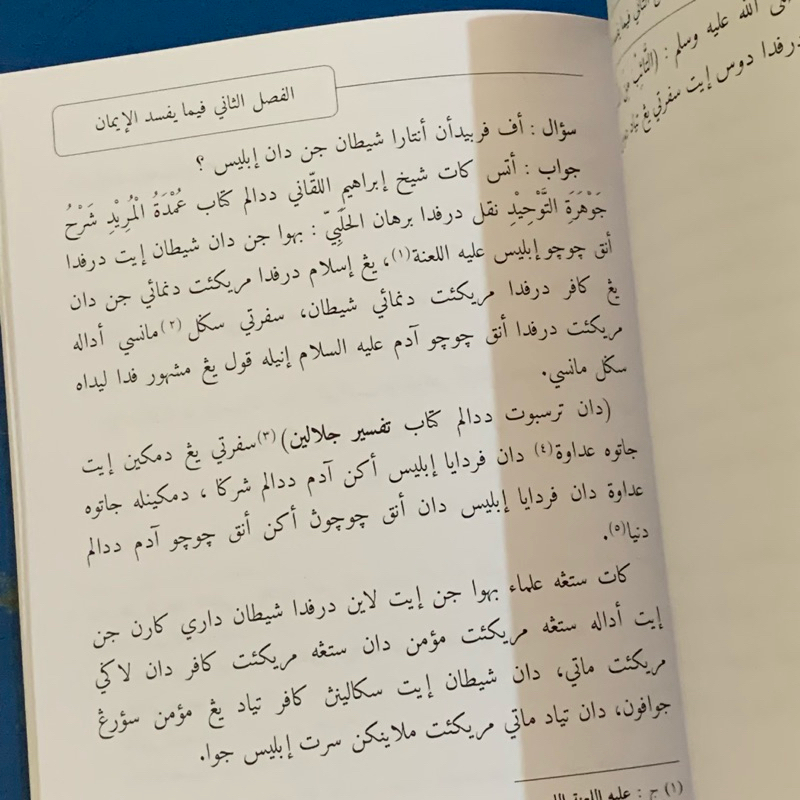 الفصل الثاني فيما يفسد الإيمان
سؤال : أف فربيدأن أنتارا شيطان جن دان إبليس ؟
جواب : أتس كات شيخ إبراهيم اللقّاني ددالم كتاب عُمْدَةُ الْمُرِيْدِ شَرْحُ
جَوْهَرَةِ التَّوْحِيْدِ نقل درفدا برهان الحَلَبِيّ : بهوا جن دان شيطان إيت درفدا
أنق چوچو إبليس عليه اللعنة(١)، يڠ إسلام درفدا مريكئت دنمائي جن دان
يڠ كافر درفدا مريكئت دنمائي شيطان، سفرتي سكل(٢) مانسي أداله
مريكئت درفدا أنق چوچو آدم عليه السلام إنيله قول يڠ مشهور فدا ليداه
سكل مانسي.
(دان ترسبوت ددالم كتاب تفسير جلالين)(٣) سفرتي يڠ دمكين إيت
جاتوه عداوة(٤) دان فردايا إبليس أكن آدم ددالم شركا ، دمكينله جاتوه
عداوة دان فردايا إبليس دان أنق چوچوڽ أكن أنق چوچو آدم ددالم
دنيا(٥).
كات ستڠه علماء بهوا جن إيت لاين درفدا شيطان داري كارن جن
إيت أداله ستڠه مريكئت مؤمن دان ستڠه مريكئت كافر دان لاكي
مريكئت ماتي، دان شيطان إيت سكالينڽ كافر تياد يڠ مؤمن سؤرڠ
جوافون، دان تياد ماتي مريكئت ملاينكن سرت إبليس جوا.
(١) ج : عليه اللعنة
الله عليه وسلم : (التَّائِبُ
درفدا دوس إيت سفرتي يڠ تياد